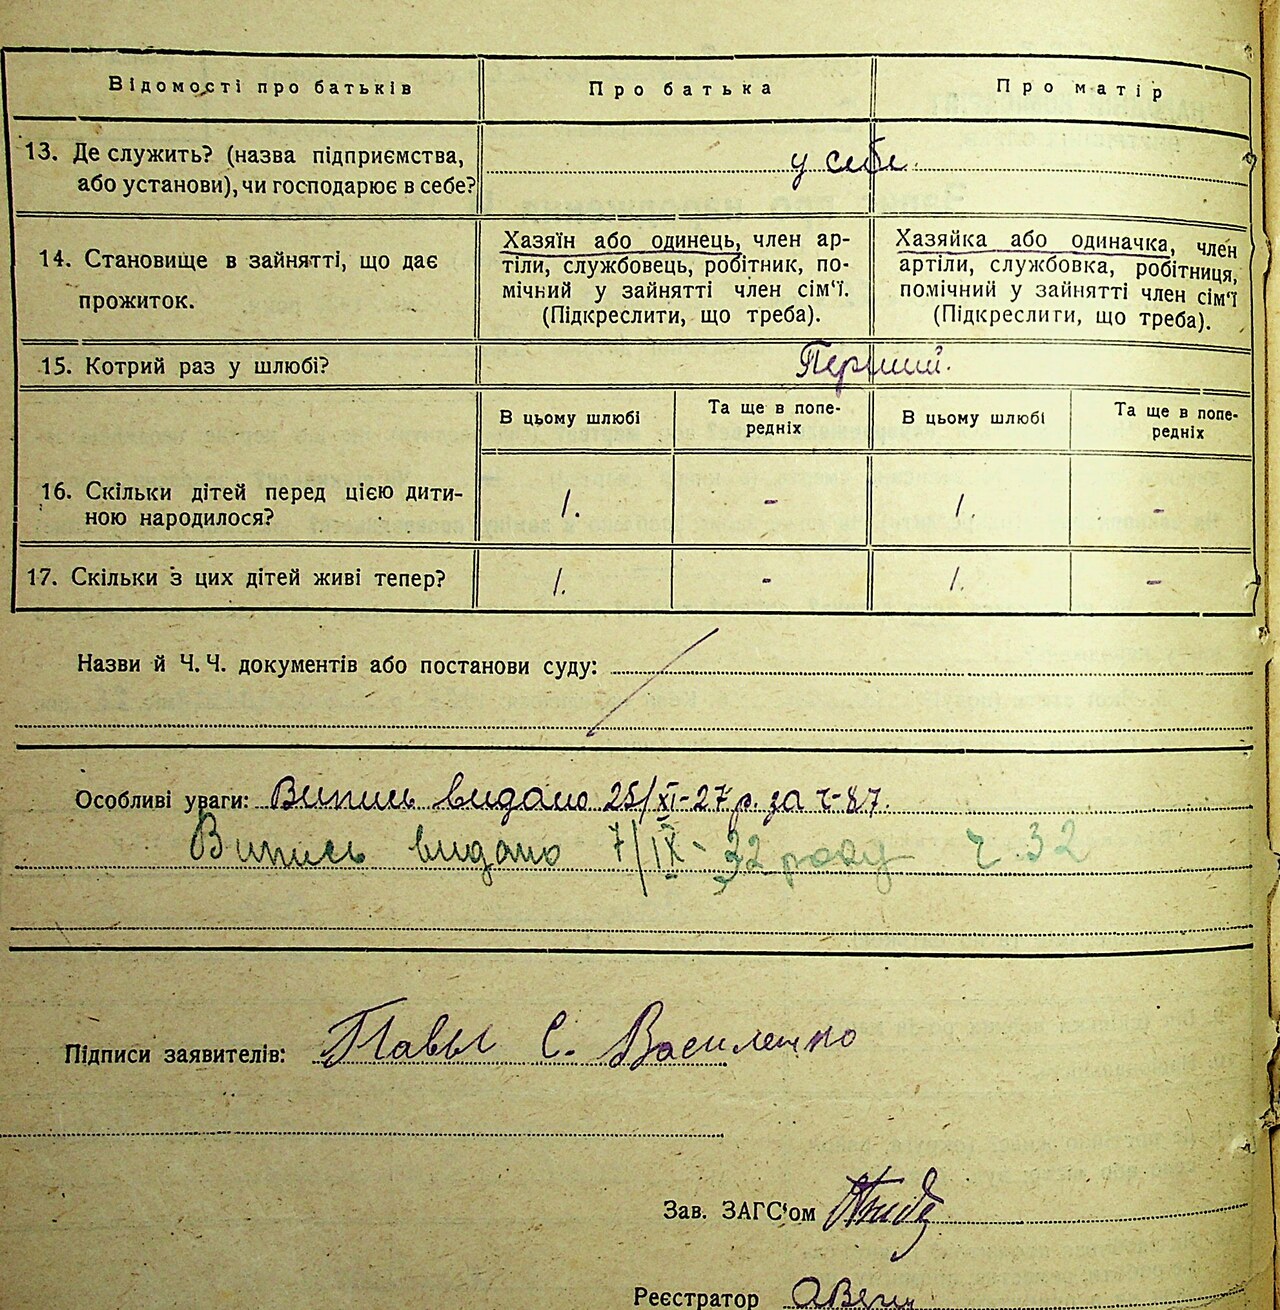 Відомості про батьків
Про батька
Про матір
13. Де служить? (назва підприємства,
або установи), чи господарює в себе?
у себе.
14. Становище в зайнятті, що дає
прожиток.
Хазяїн або одинець, член ар-
тіли, службовець, робітник, по-
мічний у зайнятті член сім'ї.
(Підкреслити, що треба).
Хазяйка або одиначка, член
артіли, службовка, робітниця,
помічний у зайнятті член сім'ї
(Підкреслити, що треба).
15. Котрий раз у шлюбі?
Перший.
В цьому шлюбі
Та ще в попе-
редніх
В цьому шлюбі
Та ще в попе-
редніх
16. Скільки дітей перед цією дити-
ною народилося?
1. - 1. -
17. Скільки з цих дітей живі тепер?
1. - 1. -
Назви й Ч. Ч. документів або постанови суду:
Особливі уваги: Випись видано 25/XI-27 р. за ч-87.
Випись видано 7/IX-32 року ч 32
Підписи заявителів: Павло С. Василенко
Зав. ЗАГС'ом
Реєстратор